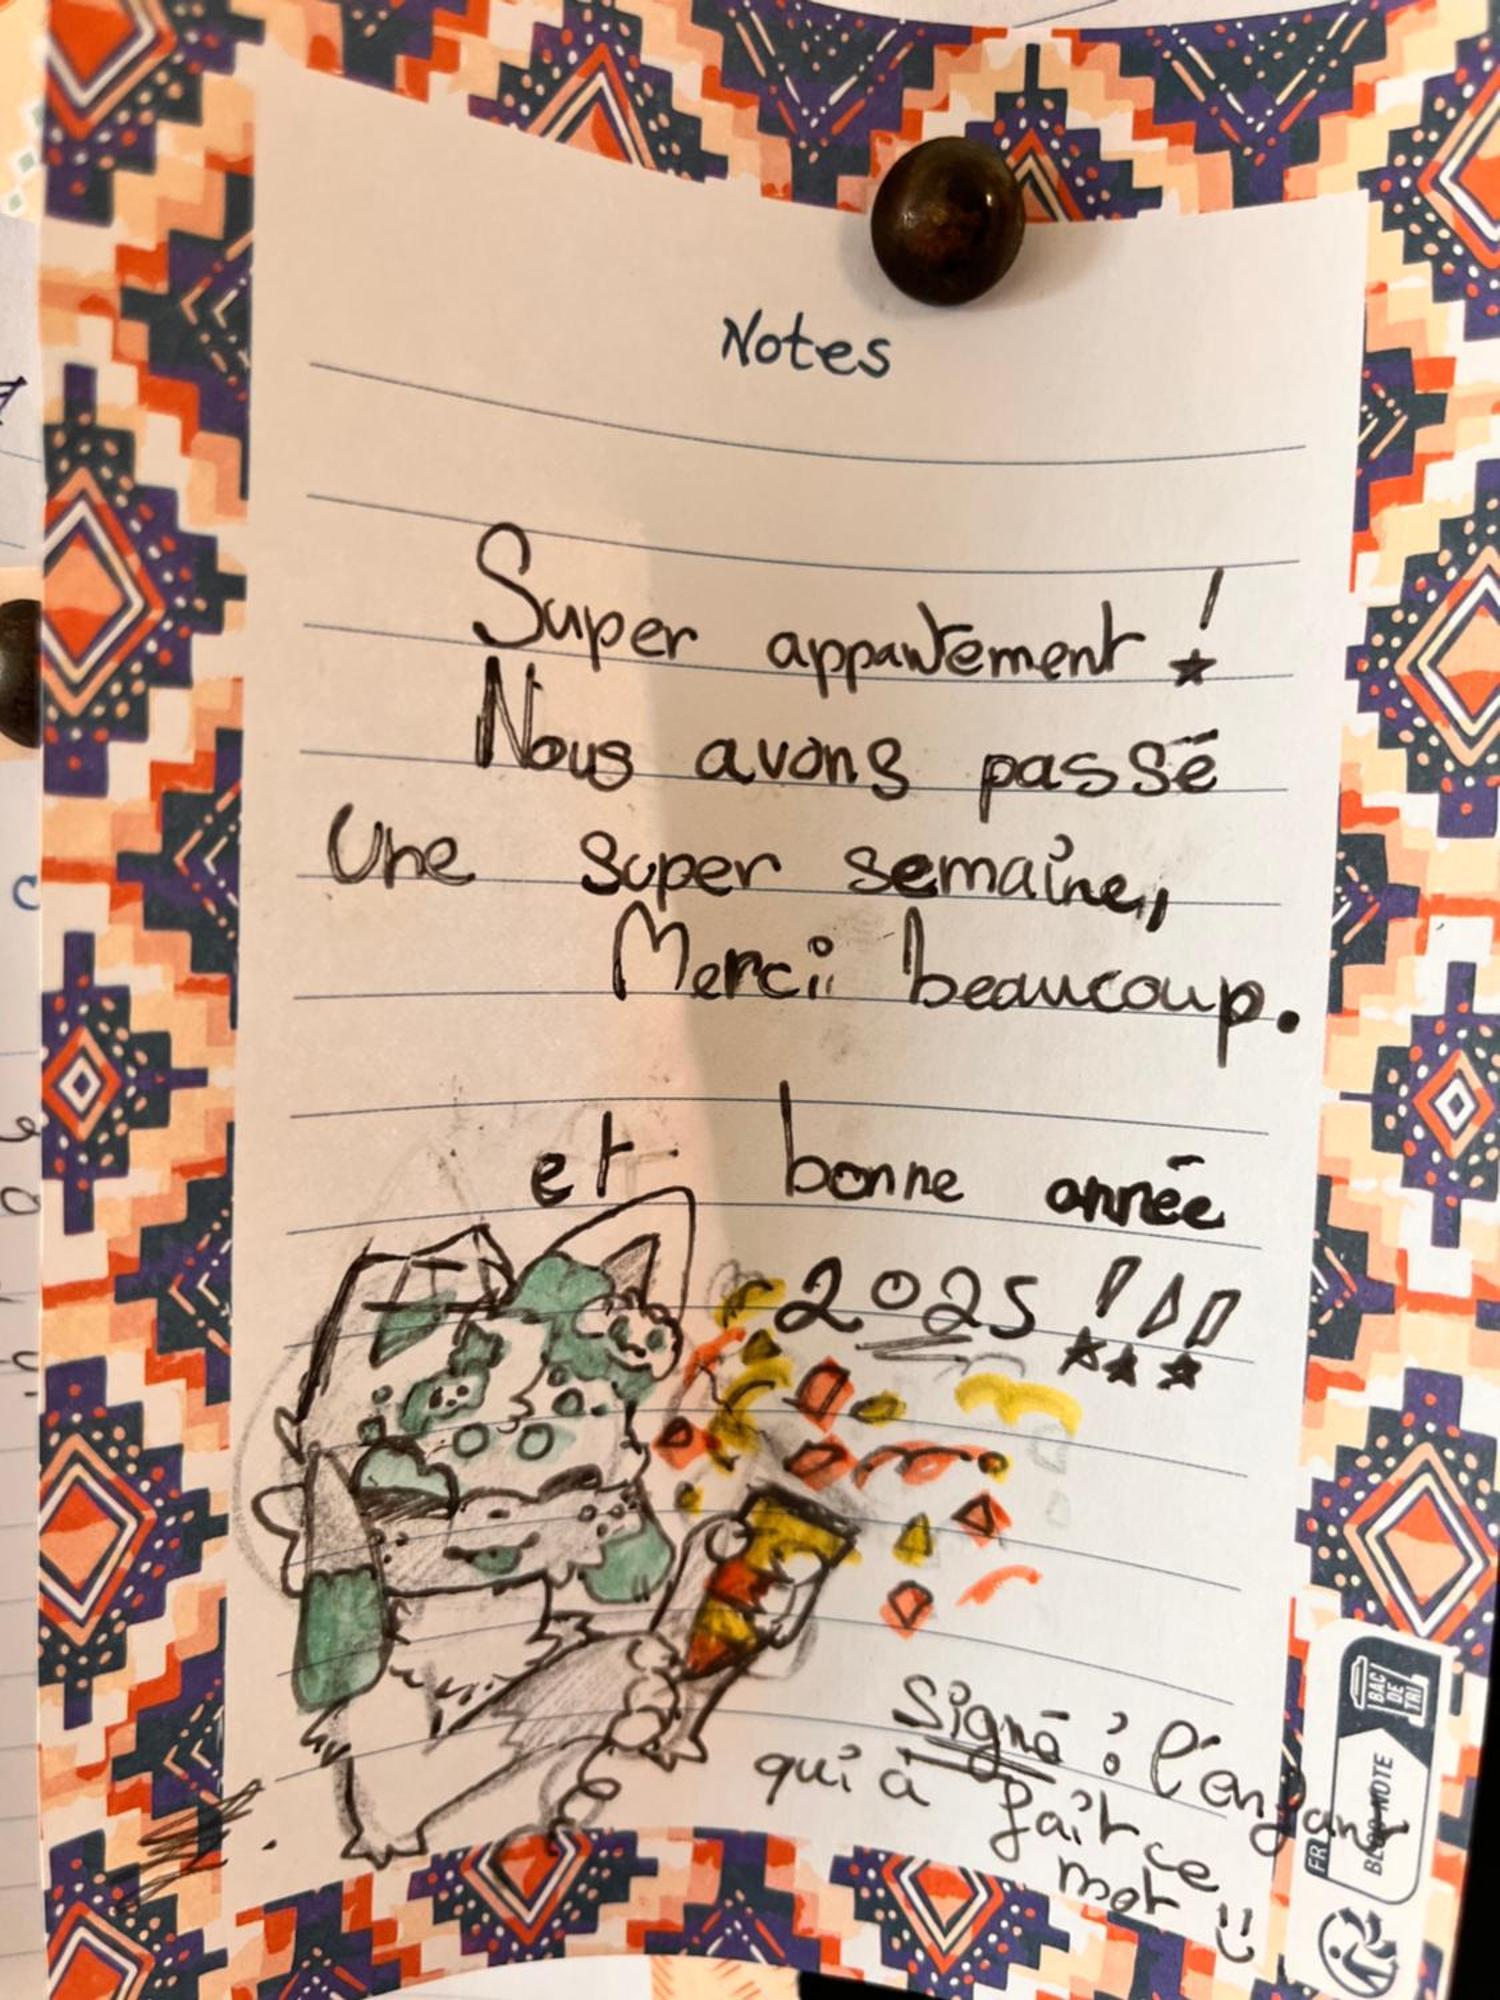 Notes
Super appartement !
Nous avons passé
Une super semaine,
Mercii beaucoup.
et bonne année
2025 !!!
Signé : l'enfant
qui a fait ce
mot
FR
BLOC-NOTE
BAC
DE
TRI